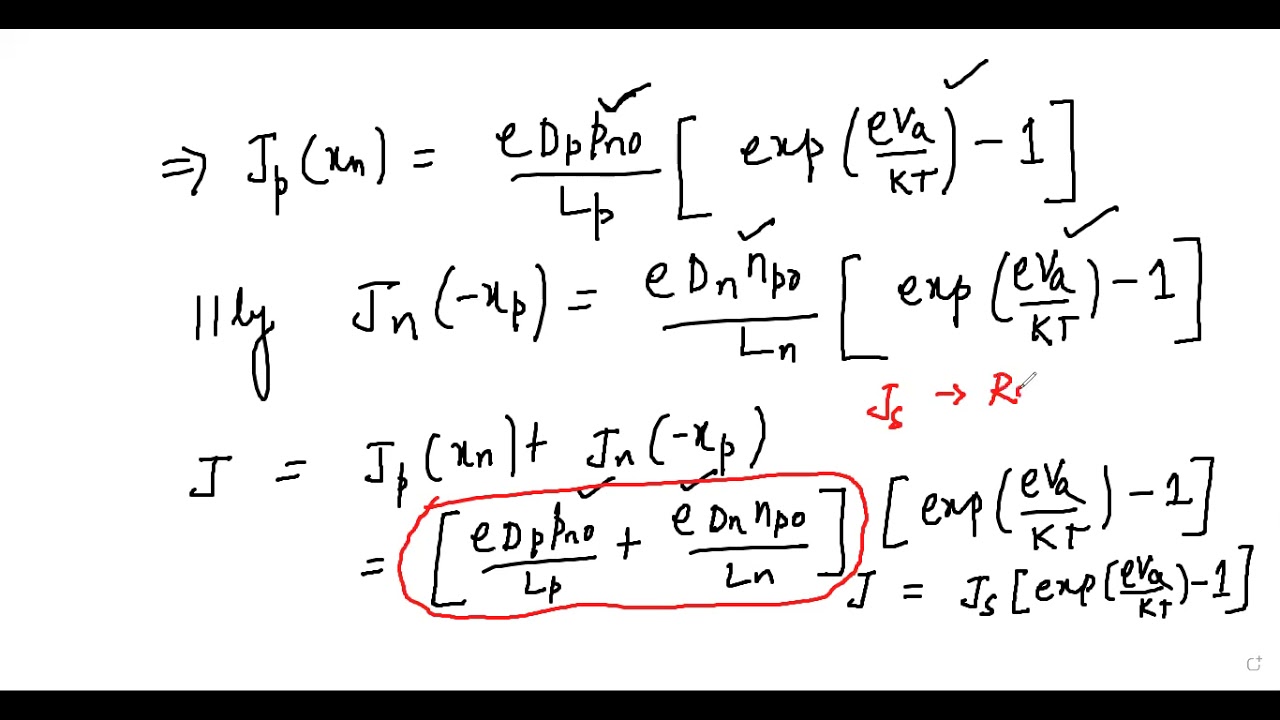 ⇒ J_p(x_n) = e D_p p_n0 / L_p [ exp(eVa/KT) - 1 ]
||ly J_n(-x_p) = e D_n n_p0 / L_n [ exp(eVa/KT) - 1 ]
J_s → R
J = J_p(x_n) + J_n(-x_p)
= [ e D_p p_n0 / L_p + e D_n n_p0 / L_n ] [ exp(eVa/KT) - 1 ]
J = J_s [ exp(eVa/KT) - 1 ]